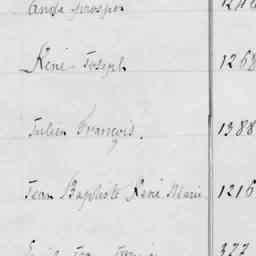 Ange prosper
René Joseph 1268
Julien François. 1388
Jean Baptiste René Marie 1216
377